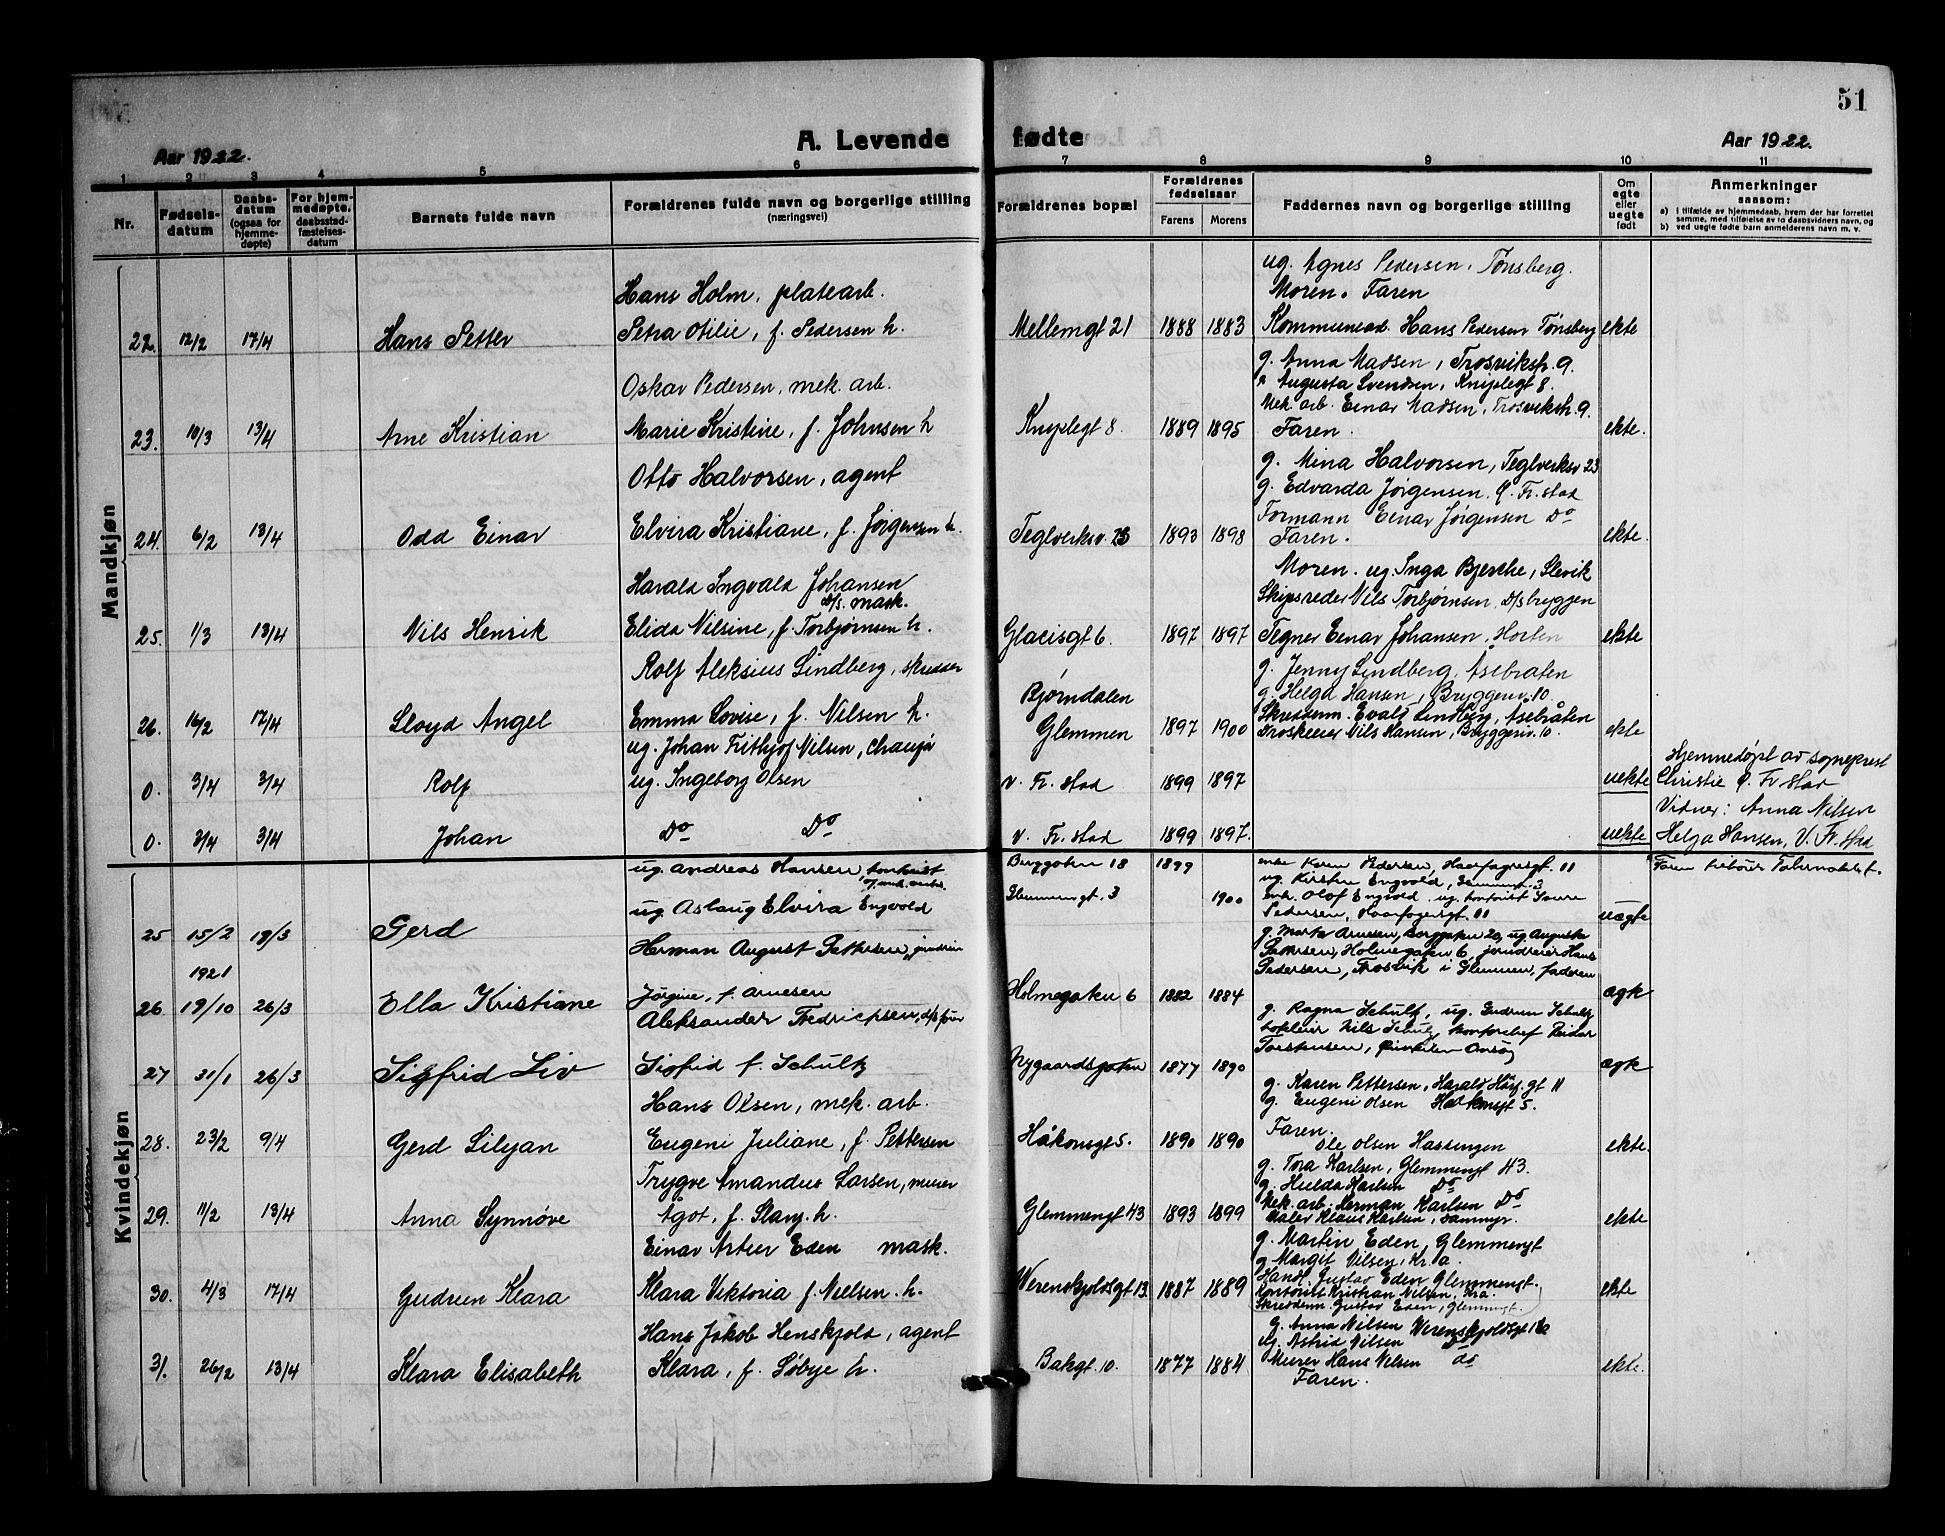 51
A. Levende fødte
Aar 1922.
Aar 1922.
1 2 3 4 5 6 7 8 9 10 11
Nr.
Fødselsdatum
Daabsdatum (ogsaa for hjemmedøpte)
For hjemmedøpte, daabsstadfæstelsesdatum
Barnets fulde navn
Forældrenes fulde navn og borgerlige stilling
(næringsvei)
Forældrenes bopæl
Forældrenes fødselsaar
Farens Morens
Faddernes navn og borgerlige stilling
Om egte eller uegte født
Anmerkninger
saasom:
a) i tilfælde av hjemmedaab, hvem der har forrettet
samme, med tilføielse av to daabsvidners navn, og
b) ved uegte fødte barn anmelderens navn m. v.
Mandkjøn
ug. Agnes Pedersen, Tønsberg.
Hans Holm, platearb.
Moren. Faren
22. 12/2 17/4 Hans Petter Petra Otilie, f. Pedersen h. Mellemgt 21 1888 1883 Kommunearb. Hans Pedersen Tønsberg ekte
g. Anna Madsen, Trosvikstr. 9.
Oskar Pedersen, mek. arb.
" Augusta Svendsen, Kniplegt 8.
Mek. arb. Einar Madsen, Trosvikstr. 9.
23. 10/3 13/4 Arne Kristian Marie Kristine, f. Johnsen h Kniplegt 8. 1889 1895 Faren. ekte.
g. Mina Halvorsen, Teglverksv 23
Otto Halvorsen, agent
g. Edvarda Jørgensen, Ø. Fr. stad
Formann Einar Jørgensen Do
24. 6/2 13/4 Odd Einar Elvira Kristiane, f. Jørgensen h. Teglverksv. 23 1893 1898 Faren. ekte.
Moren. ug. Inga Bjerche, Slevik
Harald Ingvald Johansen
D/S. mask.
Skipsreder Nils Torbjørnsen, D/S bryggen
25. 1/3 13/4 Nils Henrik Elida Nilsine, f. Torbjørnsen h. Glacisgt 6. 1897 1897 Tegner Einar Johansen, Horten ekte
Rolf Aleksius Lindberg, skredder
g. Jenny Lindberg, Åsebråten
Bjørndalen
g. Helga Hansen, Bryggeriv. 10.
Skreddem. Evald Lindberg, Åsebråten
26. 16/2 17/4 Lloyd Angel Emma Lovise, f. Nilsen h. Glemmen 1897 1900 Droskeeier Nils Hansen, Bryggeriv. 10. ekte
ug. Johan Frithjof Nilsen, chauffør
0. 3/4 3/4 Rolf ug. Ingeborg Olsen v. Fr. stad 1899 1897 uekte
Hjemmedøpt av sogneprest
Christie Ø. Fr. stad
Vidner: Anna Nilsen
0. 3/4 3/4 Johan Do Do v. Fr. stad 1899 1897. uekte Helga Hansen, V. Fr. stad
Kvindekjøn
ug. Andreas Hansen, kontorist
Berggaten 18 1899
enke Karen Pedersen, Haarfagresgt. 11
ug. Kirsten Engvold, Glemmengt. 3
ug. Aslaug Elvira Engvold
Glemmengt. 3 1900
enk. Olof Engvold, ug. kontorist
Pedersen, Haarfagresgt. 11
25 15/2 19/3 Gerd uegte
g. Marta Arnesen, Berggaten 20, ug. Augusta
Herman August Pettersen, jerndreier
Pettersen, Holmegaten 6, jerndreier Hans
Pedersen, Trosvik i Glemmen, faderen
1921
26 19/10 26/3 Ella Kristiane Jørgine, f. Arnesen Holmegaten 6 1882 1884 egte
Aleksander Fredriksen, d/s fører
g. Ragna Schultz, ug. Gudrun Schultz
27 31/1 26/3 Sigfrid Liv Sigfrid f. Schultz Nygaardsgaten 1877 1890 egte
g. Karen Pettersen, Harald Hårf. gt 11
Hans Olsen, mek. arb.
g. Eugeni Olsen Håkonsgt 5.
Faren.
28. 23/2 9/4 Gerd Lilyan Eugeni Juliane, f. Pettersen Håkonsgt 5. 1890 1890 Ole Olsen Hassingen ekte.
g. Tora Karlsen, Glemmengt 43.
Trygve Amandus Larsen, murer
g. Hulda Karlsen Do
Mek. arb. Herman Karlsen Do
29. 11/2 13/4 Anna Synnøve Ågot, f. Stang h. Glemmengt 43 1893 1899 Maler Klaus Karlsen, sammegt. ekte
Einar Artur Eden mask.
g. Martin Eden, Glemmengt
g. Margit Nilsen, Kr.a.
Handl. Gustav Eden Glemmengt.
30. 4/3 17/4 Gudrun Klara Klara Viktoria f. Nielsen. h. Werenskjoldsgt 13 1887 1889 Kontorist Kristian Nilsen, Kra. ekte
Skreddem. Gustav Eden, Glemmgt.
g. Anna Nilsen Werenskjoldsgt 16a
Hans Jakob Henskjold, agent
ug. Astrid Nilsen Do
31. 26/2 13/4 Klara Elisabeth Klara, f. Søbye h. Bakgt. 10. 1877 1884 Murer Hans Nilsen do ekte.
Faren.